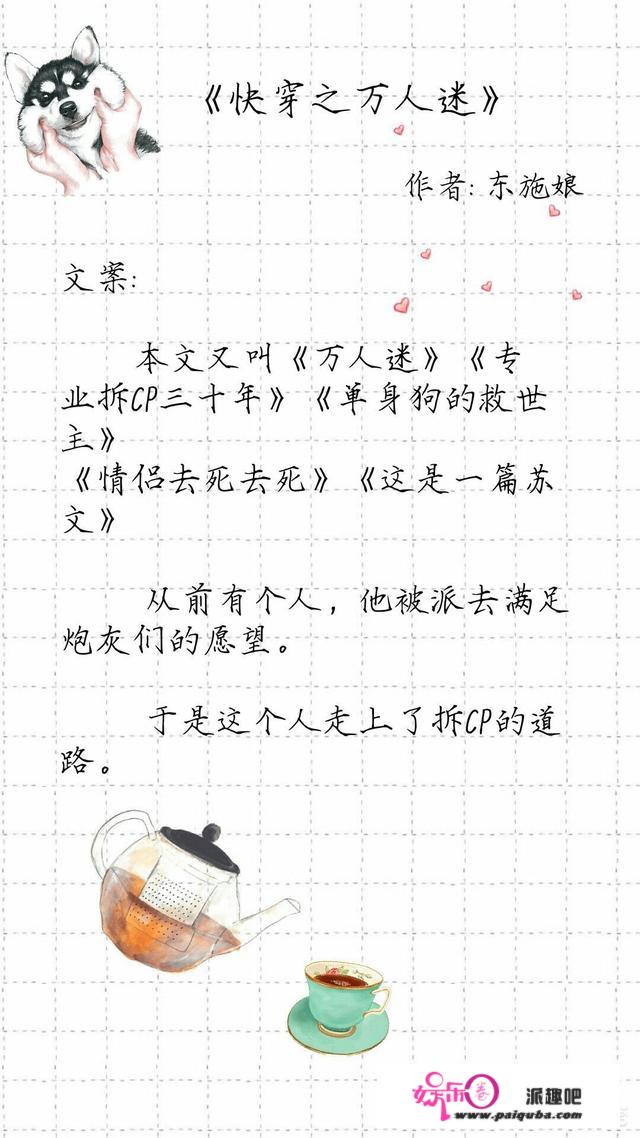 《快穿之万人迷》
作者: 东施娘
文案:
本文又叫《万人迷》《专
业拆CP三十年》《单身狗的救世
主》
《情侣去死去死》《这是一篇苏
文》
从前有个人，他被派去满足
炮灰们的愿望。
于是这个人走上了拆CP的道
路。
娱乐圈
派趣吧
www.paiquba.com